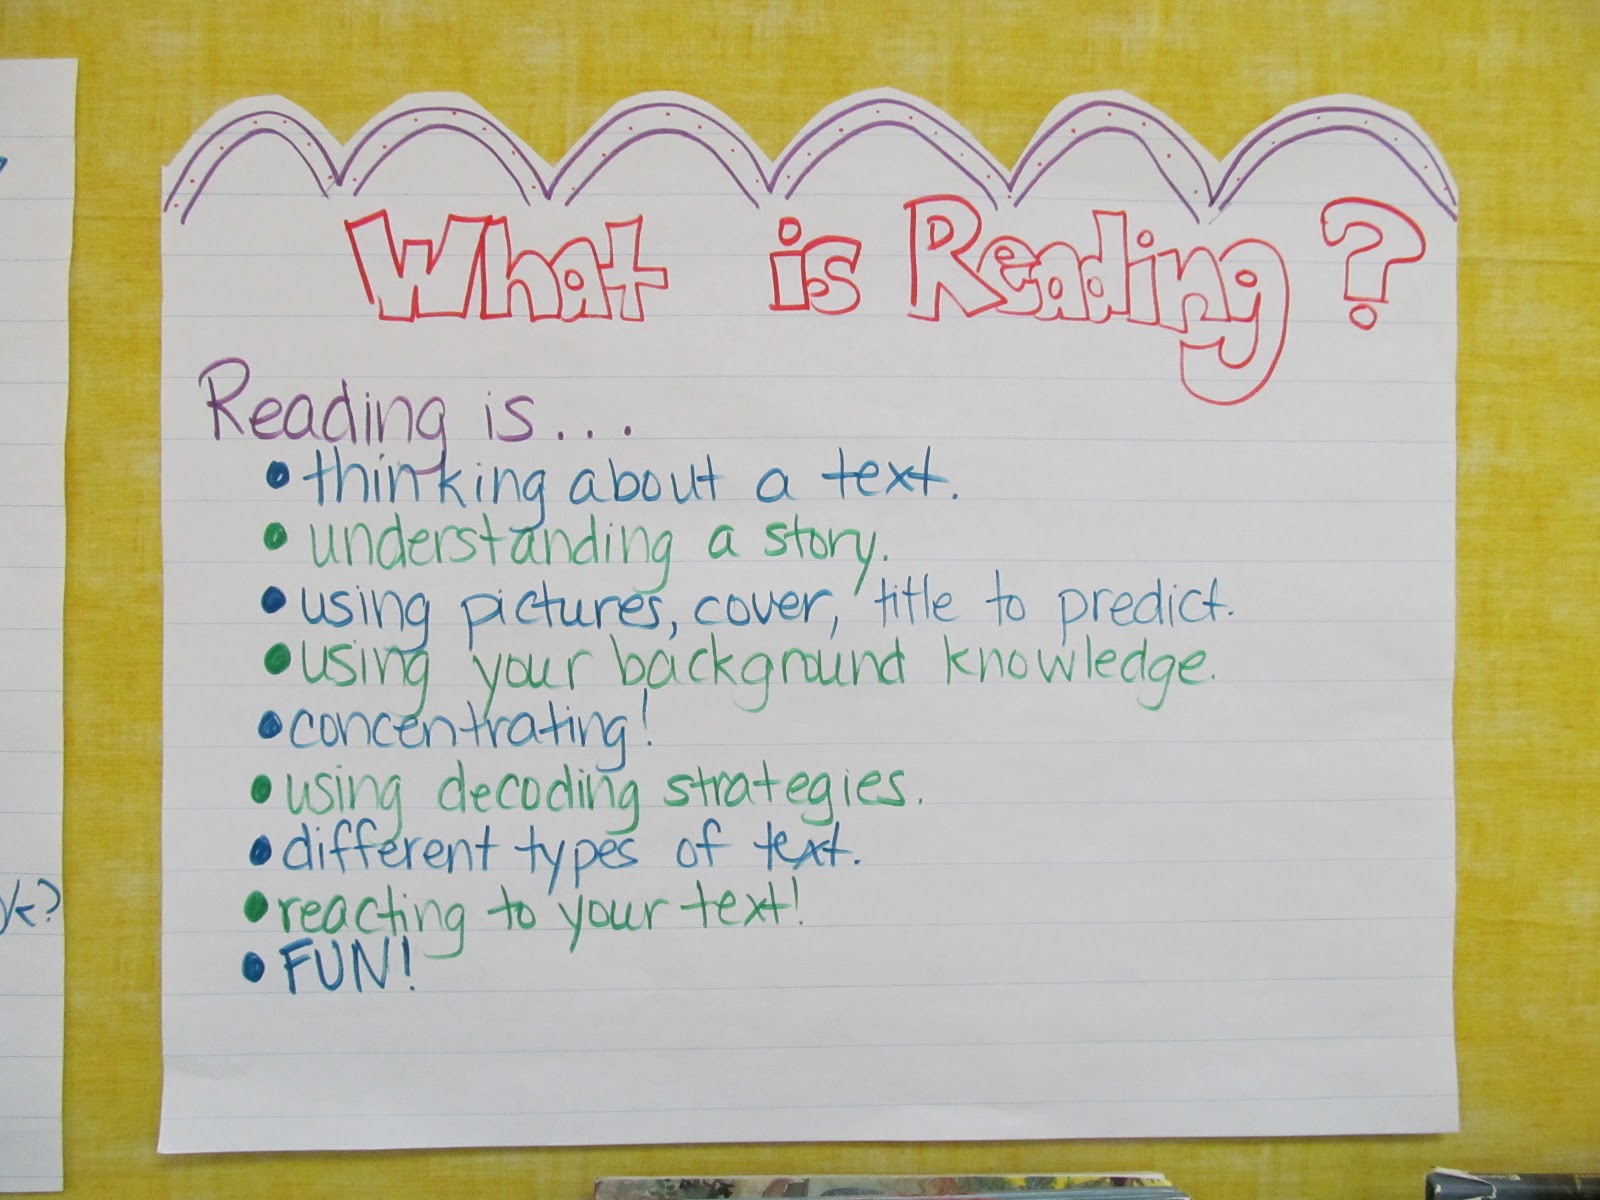 What is Reading?
Reading is...
• thinking about a text.
• understanding a story.
• using pictures, cover, title to predict.
• using your background knowledge.
• concentrating!
• using decoding strategies.
• different types of text.
• reacting to your text!
• FUN!